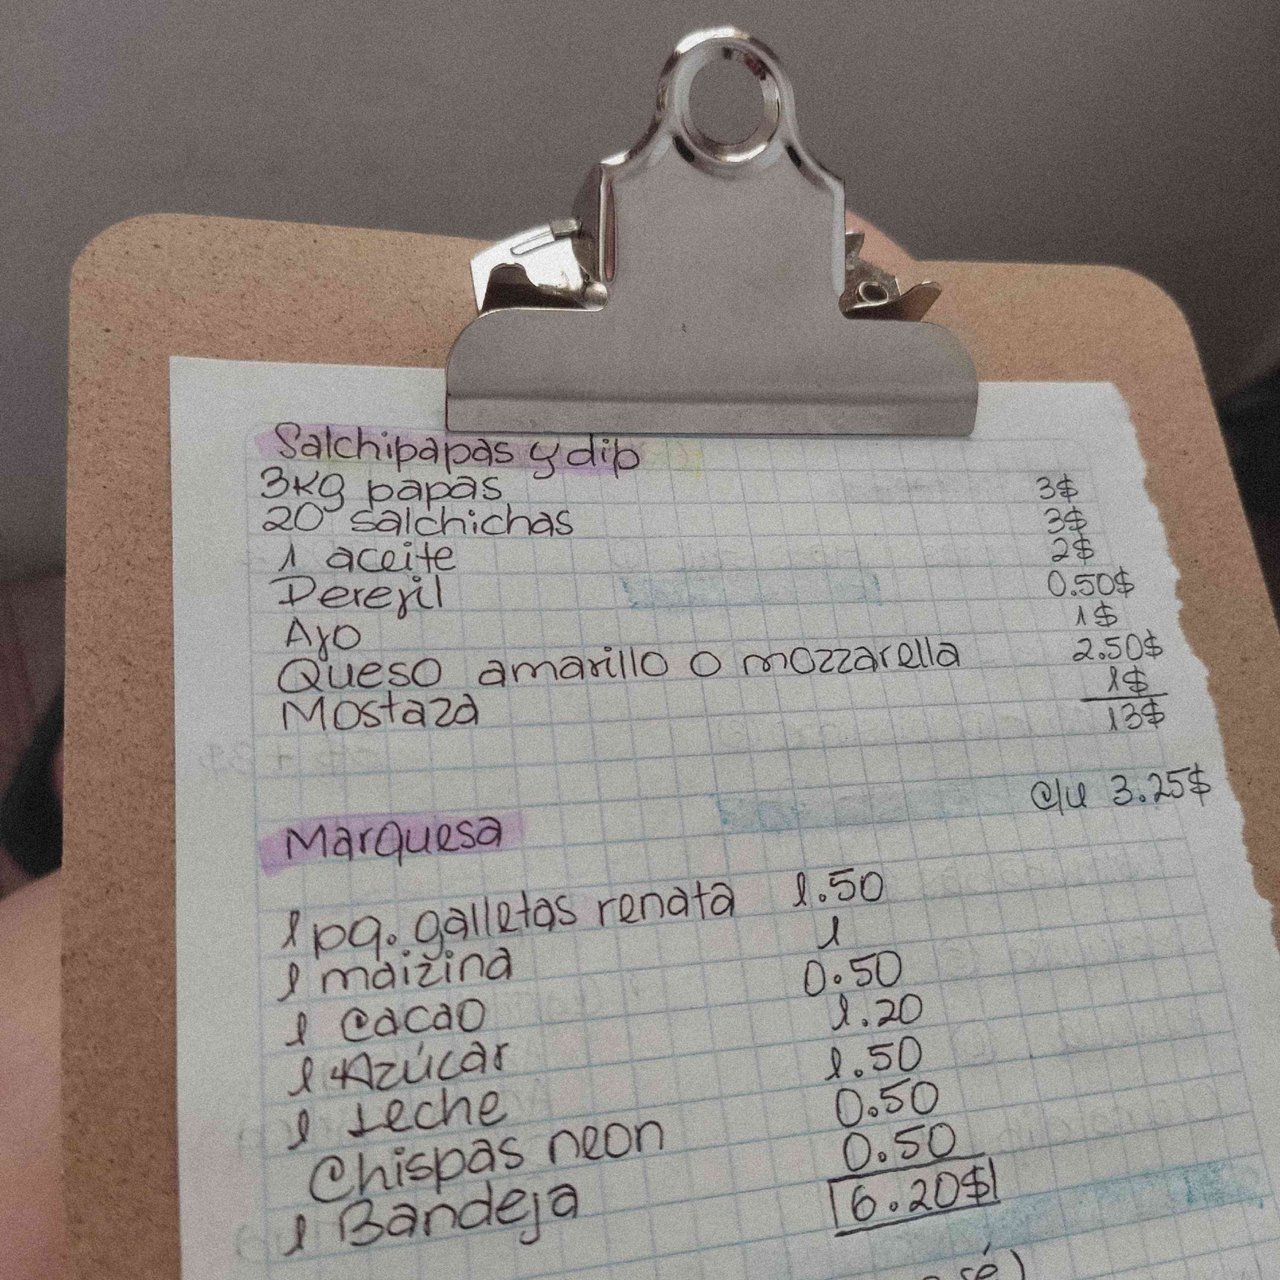 Salchipapas y dip
3Kg papas 3$
20 salchichas 3$
1 aceite 2$
Perejil 0.50$
Ajo 1$
Queso amarillo o mozzarella 2.50$
Mostaza 1$
13$
c/u 3.25$
Marquesa
1 pq. galletas renata 1.50
1 maizina 1
1 cacao 0.50
1 Azúcar 1.20
1 Leche 1.50
Chispas neon 0.50
1 Bandeja 0.50
6.20$